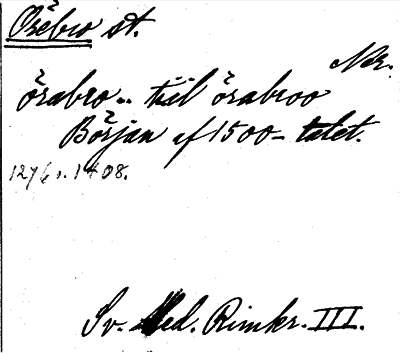 Örebro st.
Nr.
örabro.. till örabroo
Början af 1500-talet.
1276 s. 1408.
Sv. Med. Rimkr. III.